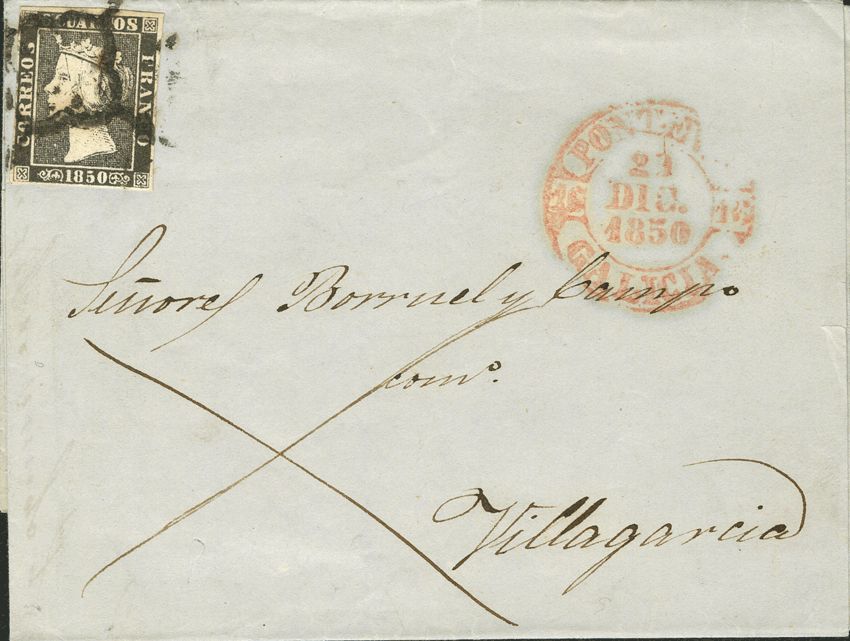 CUARTOS
CORREOS
FRANCO
1850
PONTE
DIC.
1850
GALICIA.
Señores Borruel y Campo
como.
Villagarcia